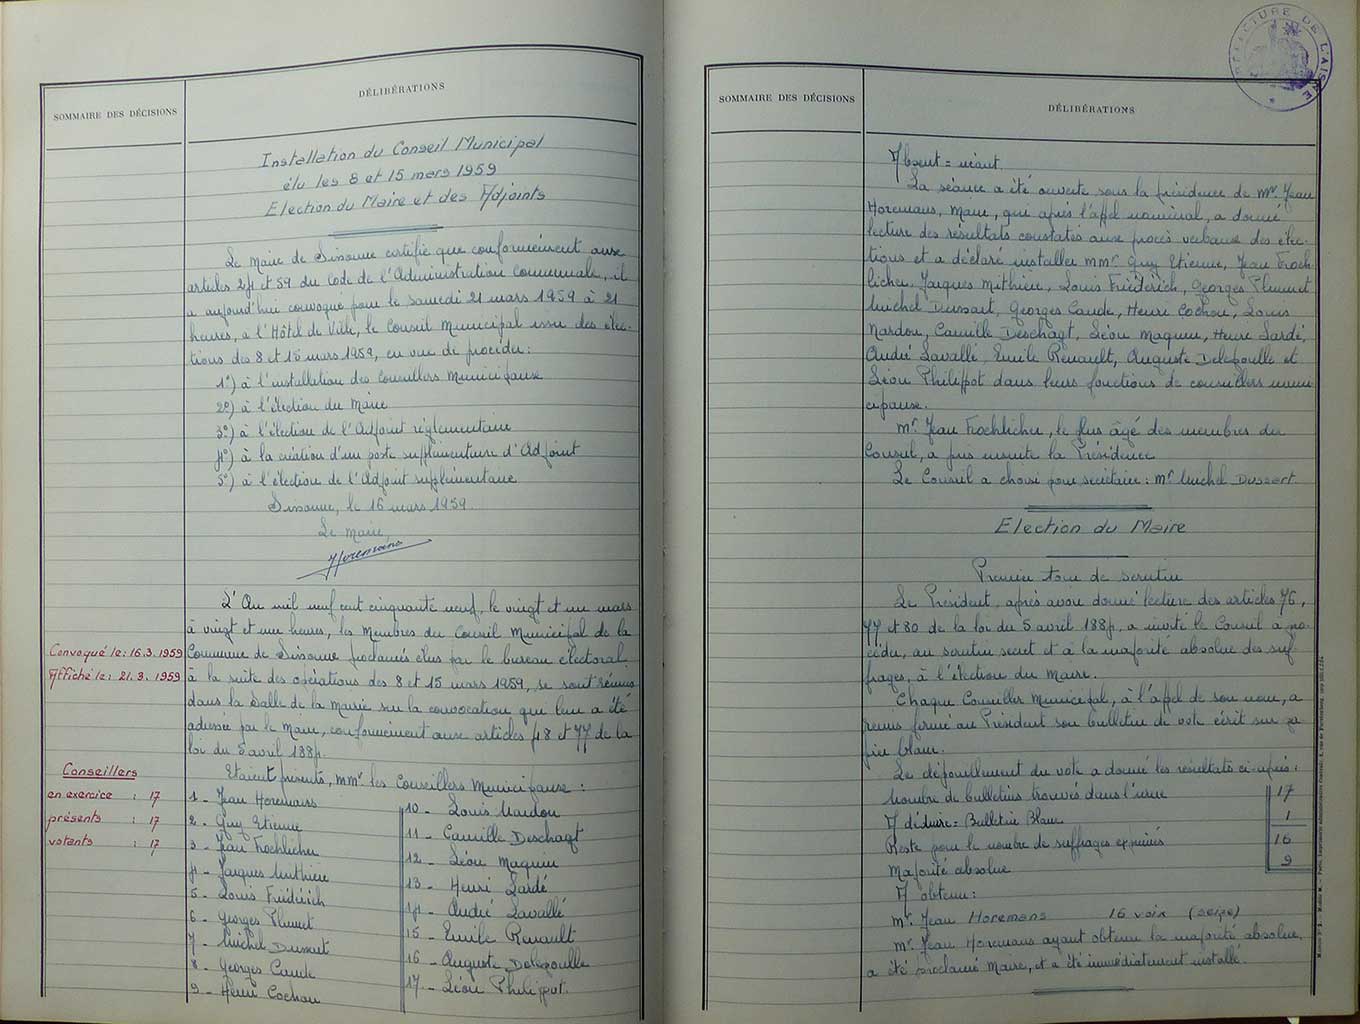 SOMMAIRE DES DÉCISIONS
DÉLIBÉRATIONS
Installation du Conseil Municipal
élu les 8 et 15 mars 1959
Election du Maire et des Adjoints
Le Maire de Sissonne certifie que conformément aux
articles 24 et 59 du Code de l'Administration Communale, il
a aujourd'hui convoqué pour le samedi 21 mars 1959 à 21
heures, à l'Hôtel de Ville, le Conseil Municipal issu des élec-
tions des 8 et 15 mars 1959, en vue de procéder :
1°) à l'installation des Conseillers Municipaux
2°) à l'élection du Maire
3°) à l'élection de l'Adjoint réglementaire
4°) à la création d'un poste supplémentaire d'Adjoint
5°) à l'élection de l'Adjoint supplémentaire
Sissonne, le 16 mars 1959.
Le Maire,
Horemans
L'An mil neuf cent cinquante neuf, le vingt et un mars
à vingt et une heures, les Membres du Conseil Municipal de la
Convoqué le : 16.3.1959
Commune de Sissonne proclamés élus par le bureau électoral,
Affiché le : 21.3.1959
à la suite des opérations des 8 et 15 mars 1959, se sont réunis
dans la Salle de la Mairie sur la convocation qui leur a été
adressée par le Maire, conformément aux articles 48 et 77 de la
loi du 5 avril 1884.
Etaient présents, MMrs les Conseillers Municipaux :
Conseillers
en exercice : 17
présents : 17
votants : 17
1 - Jean Horemans
2 - Guy Etienne
3 - Jean Frochlicher
4 - Jacques Mithière
5 - Louis Friédérich
6 - Georges Plumet
7 - Michel Dussart
8 - Georges Caude
9 - Henri Cochou
10 - Louis Nardou
11 - Camille Deschagt
12 - Léon Maquin
13 - Henri Lardé
14 - André Lavallé
15 - Emile Renault
16 - Auguste Delepoulle
17 - Léon Philippot.
PRÉFECTURE DE L'AISNE
SOMMAIRE DES DÉCISIONS
DÉLIBÉRATIONS
Absent = néant.
La séance a été ouverte sous la présidence de Mr Jean
Horemans, Maire, qui après l'appel nominal, a donné
lecture des résultats constatés aux procès verbaux des élec-
tions et a déclaré installer MMrs Guy Etienne, Jean Froch
licher, Jacques Mithière, Louis Friédérich, Georges Plumet
Michel Dussart, Georges Caude, Henri Cochou, Louis
Nardou, Camille Deschagt, Léon Maquin, Henri Lardé,
André Lavallé, Emile Renault, Auguste Delepoulle et
Léon Philippot dans leurs fonctions de conseillers muni
cipaux.
Mr Jean Frochlicher, le plus âgé des membres du
Conseil, a pris ensuite la Présidence
Le Conseil a choisi pour secrétaire : Mr Michel Dussart
Election du Maire
Premier tour de scrutin
Le Président, après avoir donné lecture des articles 76,
77 et 80 de la loi du 5 avril 1884, a invité le Conseil à pro
céder, au scrutin secret et à la majorité absolue des suf
frages, à l'élection du Maire.
Chaque Conseiller Municipal, à l'appel de son nom, a
remis fermé au Président son bulletin de vote écrit sur pa
pier blanc.
Le dépouillement du vote a donné les résultats ci-après :
Nombre de bulletins trouvés dans l'urne 17
A déduire = Bulletin Blanc 1
Reste pour le nombre de suffrages exprimés 16
Majorité absolue 9
A obtenu :
Mr. Jean Horemans 16 voix (seize)
Mr. Jean Horemans ayant obtenu la majorité absolue,
a été proclamé Maire, et a été immédiatement installé.